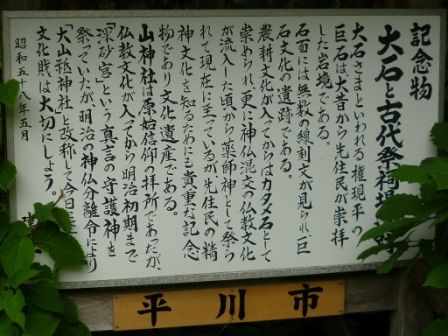 記念物
大石と古代祭祠場跡
大石さまといわれる権現平の
巨石は大昔から先住民が崇拝
した岩境である。
石面には無数の線刻文が見られ、巨
石文化の遺跡である。
農耕文化が入ってからはカタメ石として
崇められ、更に神仏混交の仏教文化
が流入した頃から薬師神として祭ら
れて現在に至っているが先住民への精
神文化を知るためにも貴重な記念
物であり文化遺産である。
山神社は原始信仰の拝所であったが、
仏教文化が入ってから明治初期まで
「深砂宮」という真言の守護神を
祭っていたが明治の神仏分離令により
「大山祇神社」と改称して今日
文化財は大切にしよう。
昭和五十八年五月
平川市